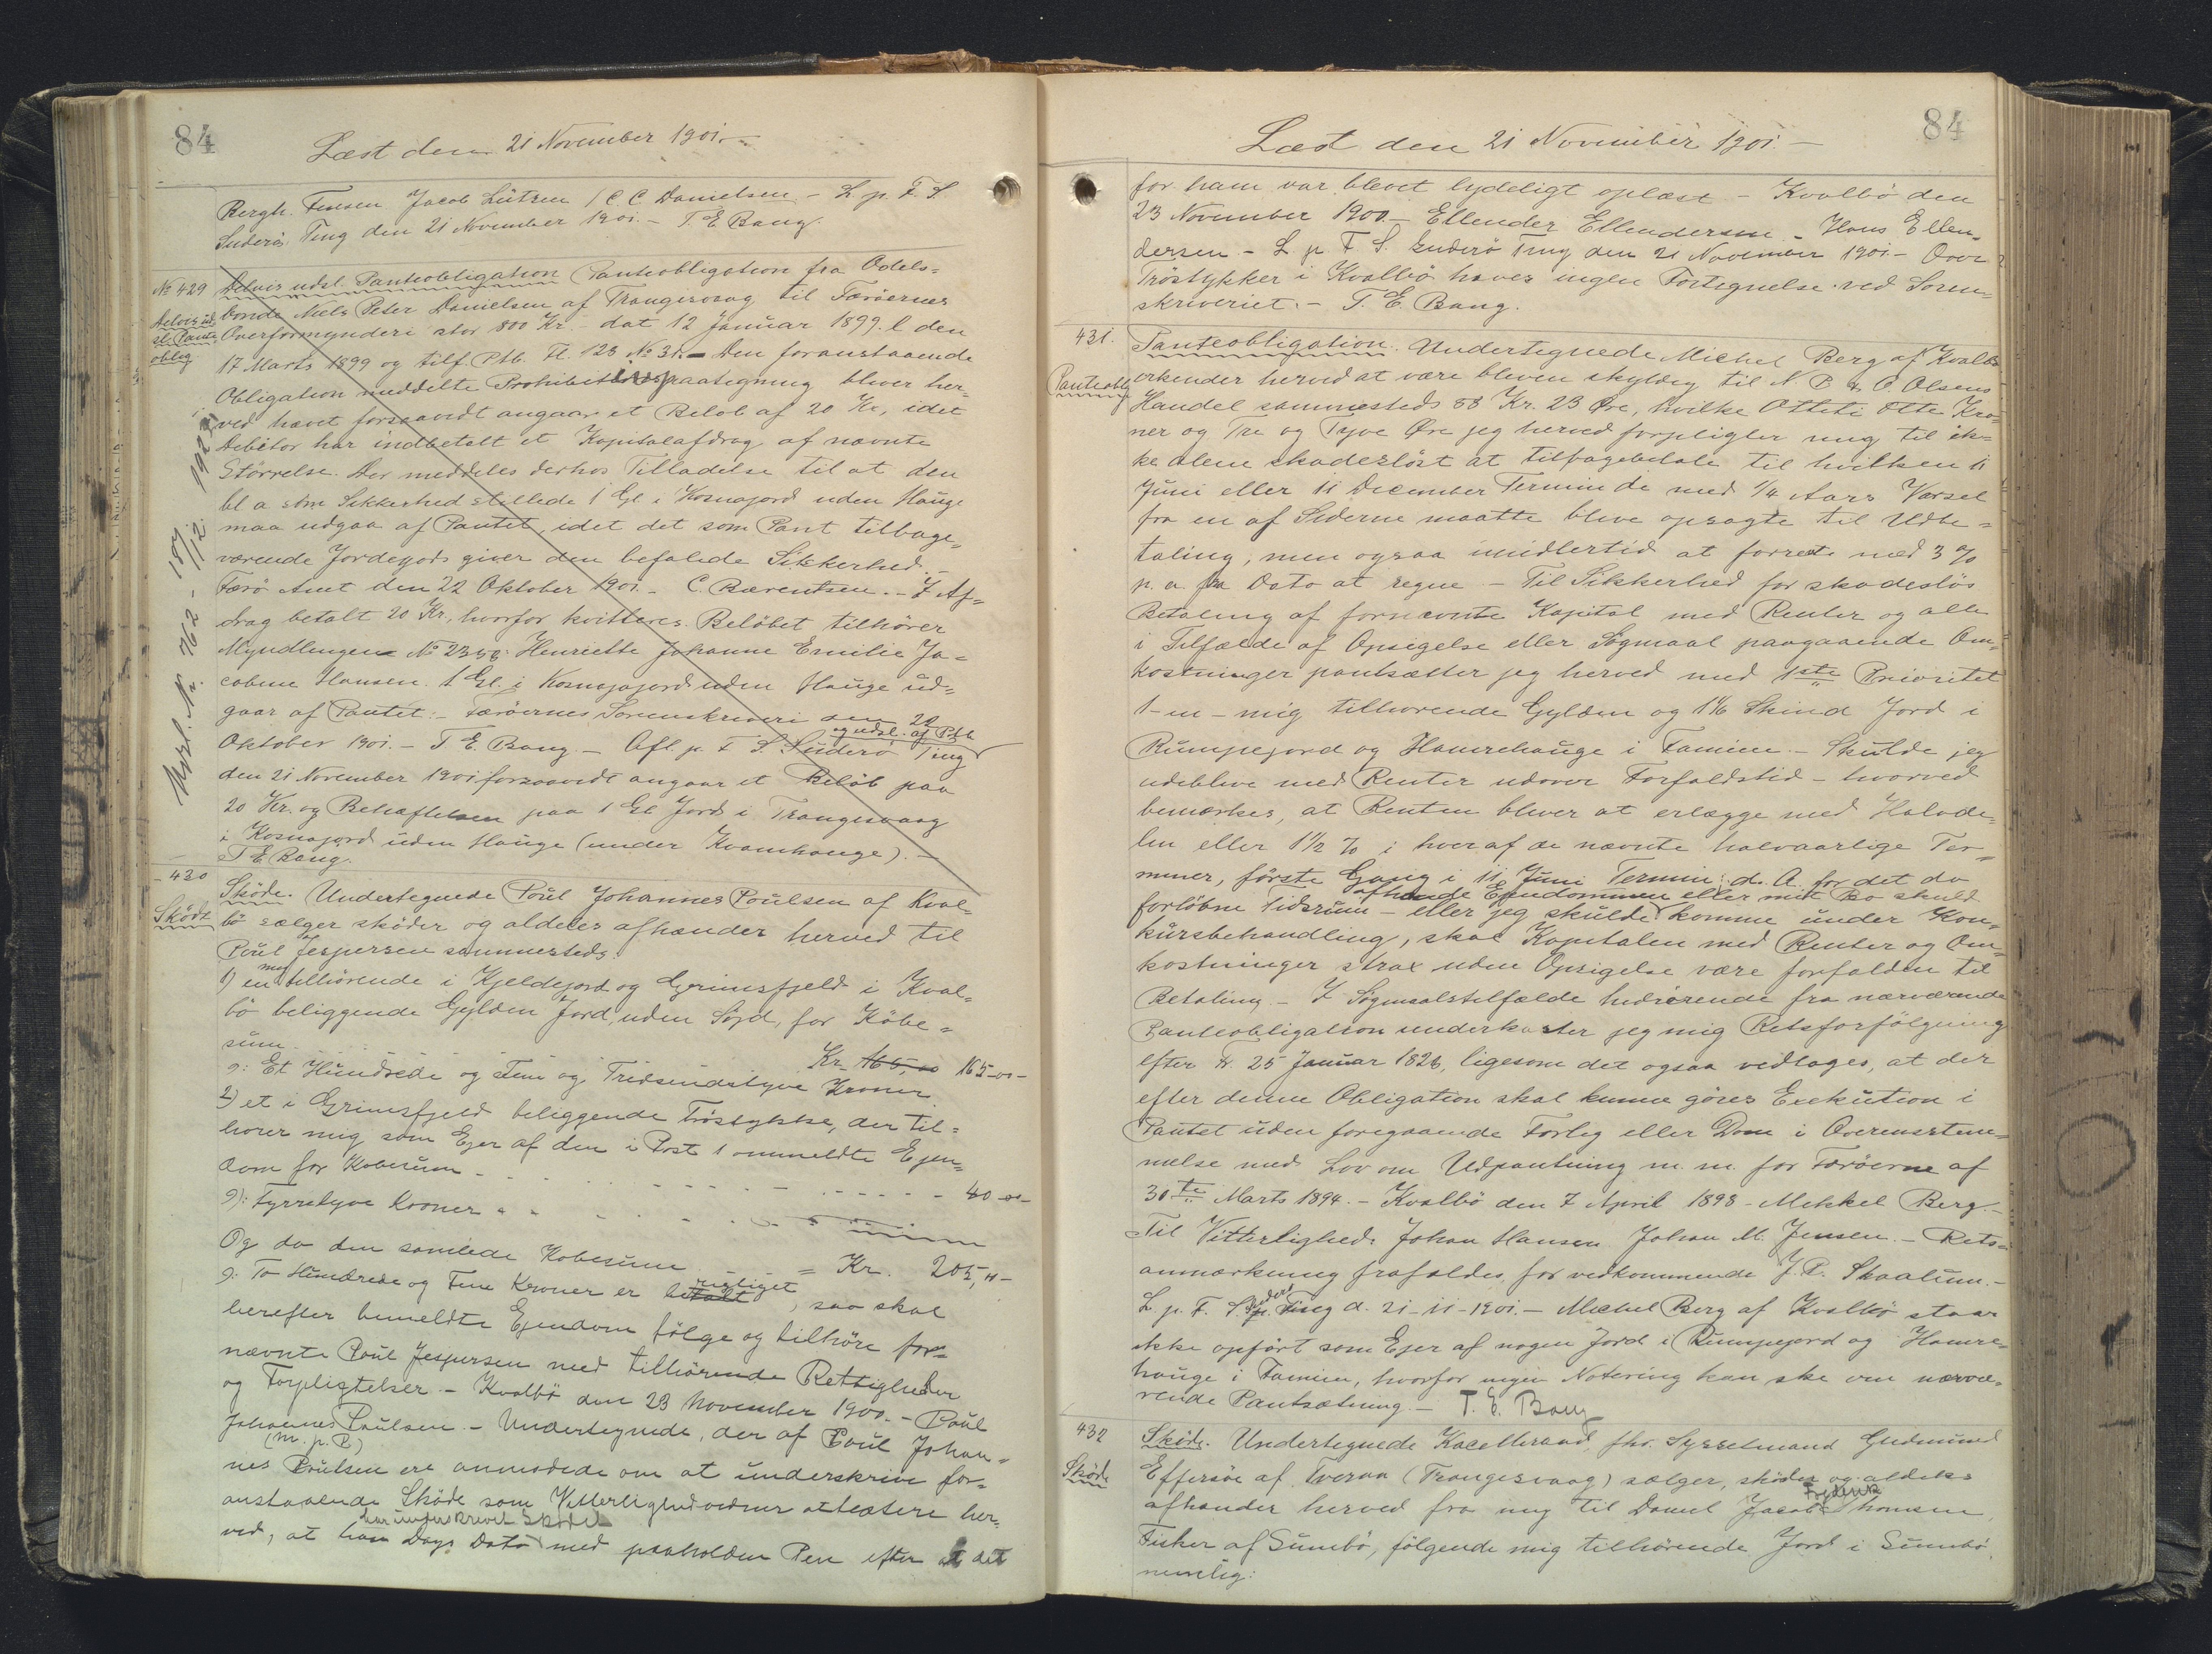 84
Læst den 21 November 1901.-
Bergh. Fuesen Jacob Lützen / C. C. Danielsen - L p. F. S.
Suderø Ting den 21 November 1901. - T. E Bang.
№ 429
Delvis ud
sl. Pante
oblig
Delvis udsl. Panteobligation (Panteobligation fra Odels=
bonde Niels Peter Danielsen af Trangisvaag til Færöernes
Overformynderi stor 800 Kr. - dat 12 Januar 1899. l den
17 Marts 1899 og tilf. Ptb. Fl. 123 № 31. - Den foranstaaende
Obligation meddelte Prohibitivpaategning bliver her=
ved hævet forsaavidt angaar et Beløb af 20 Kr, idet
Debitor har indbetalt et Kapitalafdrag af nævnte
Størrelse. Der meddeles derhos Tilladelse til at den
bl a som Sikkerhed stillede 1 Gl i Kosnajord uden Hauge
maa udgaa af Pantet, idet det som Pant tilbage=
værende Jordegods giver den befalede Sikkerhed. -
Færö Amt den 22 Oktober 1901. - C. Bærentsen. - I Af=
drag betalt 20 Kr., hvorfor kvitteres. Beløbet tilhörer
Myndlingen № 2358: Henriette Johanne Emilie Ja=
cobine Hansen. 1 Gl. i Kosnajord uden Hauge ud=
gaar af Pantet: - Færöernes Sorenskriveri den 29
Oktober 1901. - T E. Bang. - Afl. p. F S. Suderø Ting
og udsl. af Ptb
den 21 November 1901 forsaavidt angaar et Beløb paa
20 Kr. og Behæftelsen paa 1 Gl Jord i Trangisvaag
i Kosnajord uden Hauge (under Kvamhauge). -
T E Bang.
Udsl. Nr. 762 - 18/12 1924
430
Skøde
Skøde. Undertegnede Poul Johannes Poulsen af Kval=
bø sælger skøder og aldeles afhænder herved til
Poul Jespersen sammesteds:
1) en mig tilhörende i Kjeldejord og Grimsfjeld i Kval=
bø beliggende Gylden Jord, uden Søyd, for Købe=
sum. Kr. 165,00 165-00-
ɔ: Et Hundrede og Fem og Tredsindstyve Kroner.
2) et i Grimsfjeld beliggende Tröstykke, der til=
hører mig som Ejer af den i Post 1 ommeldte Ejen=
dom for Kobesum - - - - - - - - - 40-00-
ɔ: Fyrretyve Kroner
Og da den samlede Kobesum - - = Kr. 205,"-
ɔ: To Hundrede og Fem Kroner er betalt, saa skal
herefter bemeldte Ejendom fölge og tilhöre for=
nævnte Poul Jespersen med tilhörende Rettigheder
og Forpligtelser. - Kvalbø den 23 November 1900. - Poul
Johannes Poulsen. - Undertegnede, der af Poul Johan=
(m. p. P.)
nes Poulsen ere anmodede om at underskrive for=
anstaaende Skøde som Vitterlighedvidner attestere her=
har underskrevet Skødet
ved, at han Dags Dato med paaholden Pen efter at det
84
Læst den 21 November 1901 -
for ham var blevet lydeligt oplæst - Kvalbø den
23 November 1900. - Ellender Ellendersen. - Hans Ellen=
dersen - L p F S. Suderø Ting den 21 November 1901 - Over
Tröstykker i Kvalbø haves ingen Fortegnelse ved Soren=
skriveriet. - T. E. Bang.
431.
Panteoblg
Panteobligation. Undertegnede Michel Berg af Kvalbø
erkender herved at være bleven skyldig til N. P. & O Olsens
Handel sammesteds 88 Kr. 23 Øre, hvilke Otteti Otte Kro=
ner og Tre og Tyve Øre jeg herved forpligter mig til ik=
ke alene skadesløst at tilbagebetale til hvilken 11
Juni eller 11 December Termin de med 1/4 Aars Varsel
fra en af Siderne maatte blive opsagte til Udbe=
taling, men ogsaa imidlertid at forrente med 3 %
p. a. fra Dato at regne - Til Sikkerhed for skadesløs
Betaling af fornævnte Kapital med Renter og alle
i Tilfælde af Opsigelse eller Søgmaal paagaaende Om=
kostninger pantsætter jeg herved med 1ste Prioritet
1 - en - mig tilhørende Gylden og 1 1/6 Skind Jord i
Rumpejord og Hamrehauge i Famien. - Skulde jeg
udeblive med Renter udover Forfaldstid - hvorved
bemærkes, at Renten bliver at erlægge med Halvde=
len eller 1 1/2 % i hver af de nævnte halvaarlige Ter=
miner, første Gang i 11 Juni Termin d. A. for det da
afhænde Ejendommen eller mit Bo skuld
forløbne Tidsrum - eller jeg skulde komme under Kon=
kursbehandling, skal Kapitalen med Renter og Om=
kostninger strax uden Opsigelse være forfalden til
Betaling. - I Søgmaalstilfælde hidrörende fra nærværende
Panteobligation underkaster jeg mig Retsforfölgning
efter Fr. 25 Januar 1828, ligesom det ogsaa vedtages, at der
efter denne Obligation skal kunne göres Exekution i
Pantet uden foregaaende Forlig eller Dom i Overensstem=
melse med Lov om Udpantning m. m. for Færöerne af
30te Marts 1894. - Kvalbø den 7 April 1898 - Mikkel Berg -
Til Vitterlighed: Johan Hansen Johan M. Jensen. - Rets=
anmærkning frafaldes for vedkommende J. P. Skaalum. -
L. p. F. S. Suderø Ting d. 21-11-1901. - Michel Berg af Kvalbø staar
ikke opført som Ejer af nogen Jord i Rumpejord og Hamre=
hauge i Famien, hvorfor ingen Notering kan ske om nærvæ=
rende Pantsætning. - T. E. Bang
432
Skøde
Skøde. Undertegnede fhv. Sysselmand Gudmund
Effersöe af Tveraa (Trangisvaag) sælger, skøder og aldeles
afhænder herved fra mig til Daniel Jacob Frederik Thomsen,
Fisker af Sumbø, følgende mig tilhörende Jord i Sumbø,
nemlig: